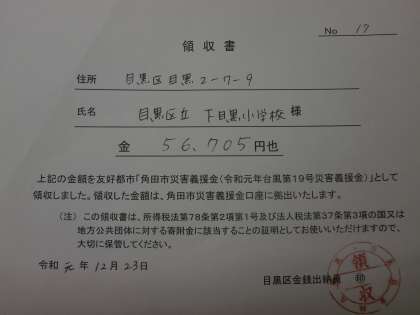 No 17
領収書
住所 目黒区目黒2-7-9
氏名 目黒区立 下目黒小学校 様
金 56,705円也
上記の金額を友好都市「角田市災害義援金(令和元年台風第19号災害義援金)」として
領収しました。領収した金額は、角田市災害義援金口座に拠出いたします。
(注) この領収書は、所得税法第78条第2項第1号及び法人税法第37条第3項の国又は
地方公共団体に対する寄附金に該当することの証明としてお使いいただけますので、
大切に保管してください。
令和 元 年 12月 23日
目黒区金銭出納員 ㊞
領収